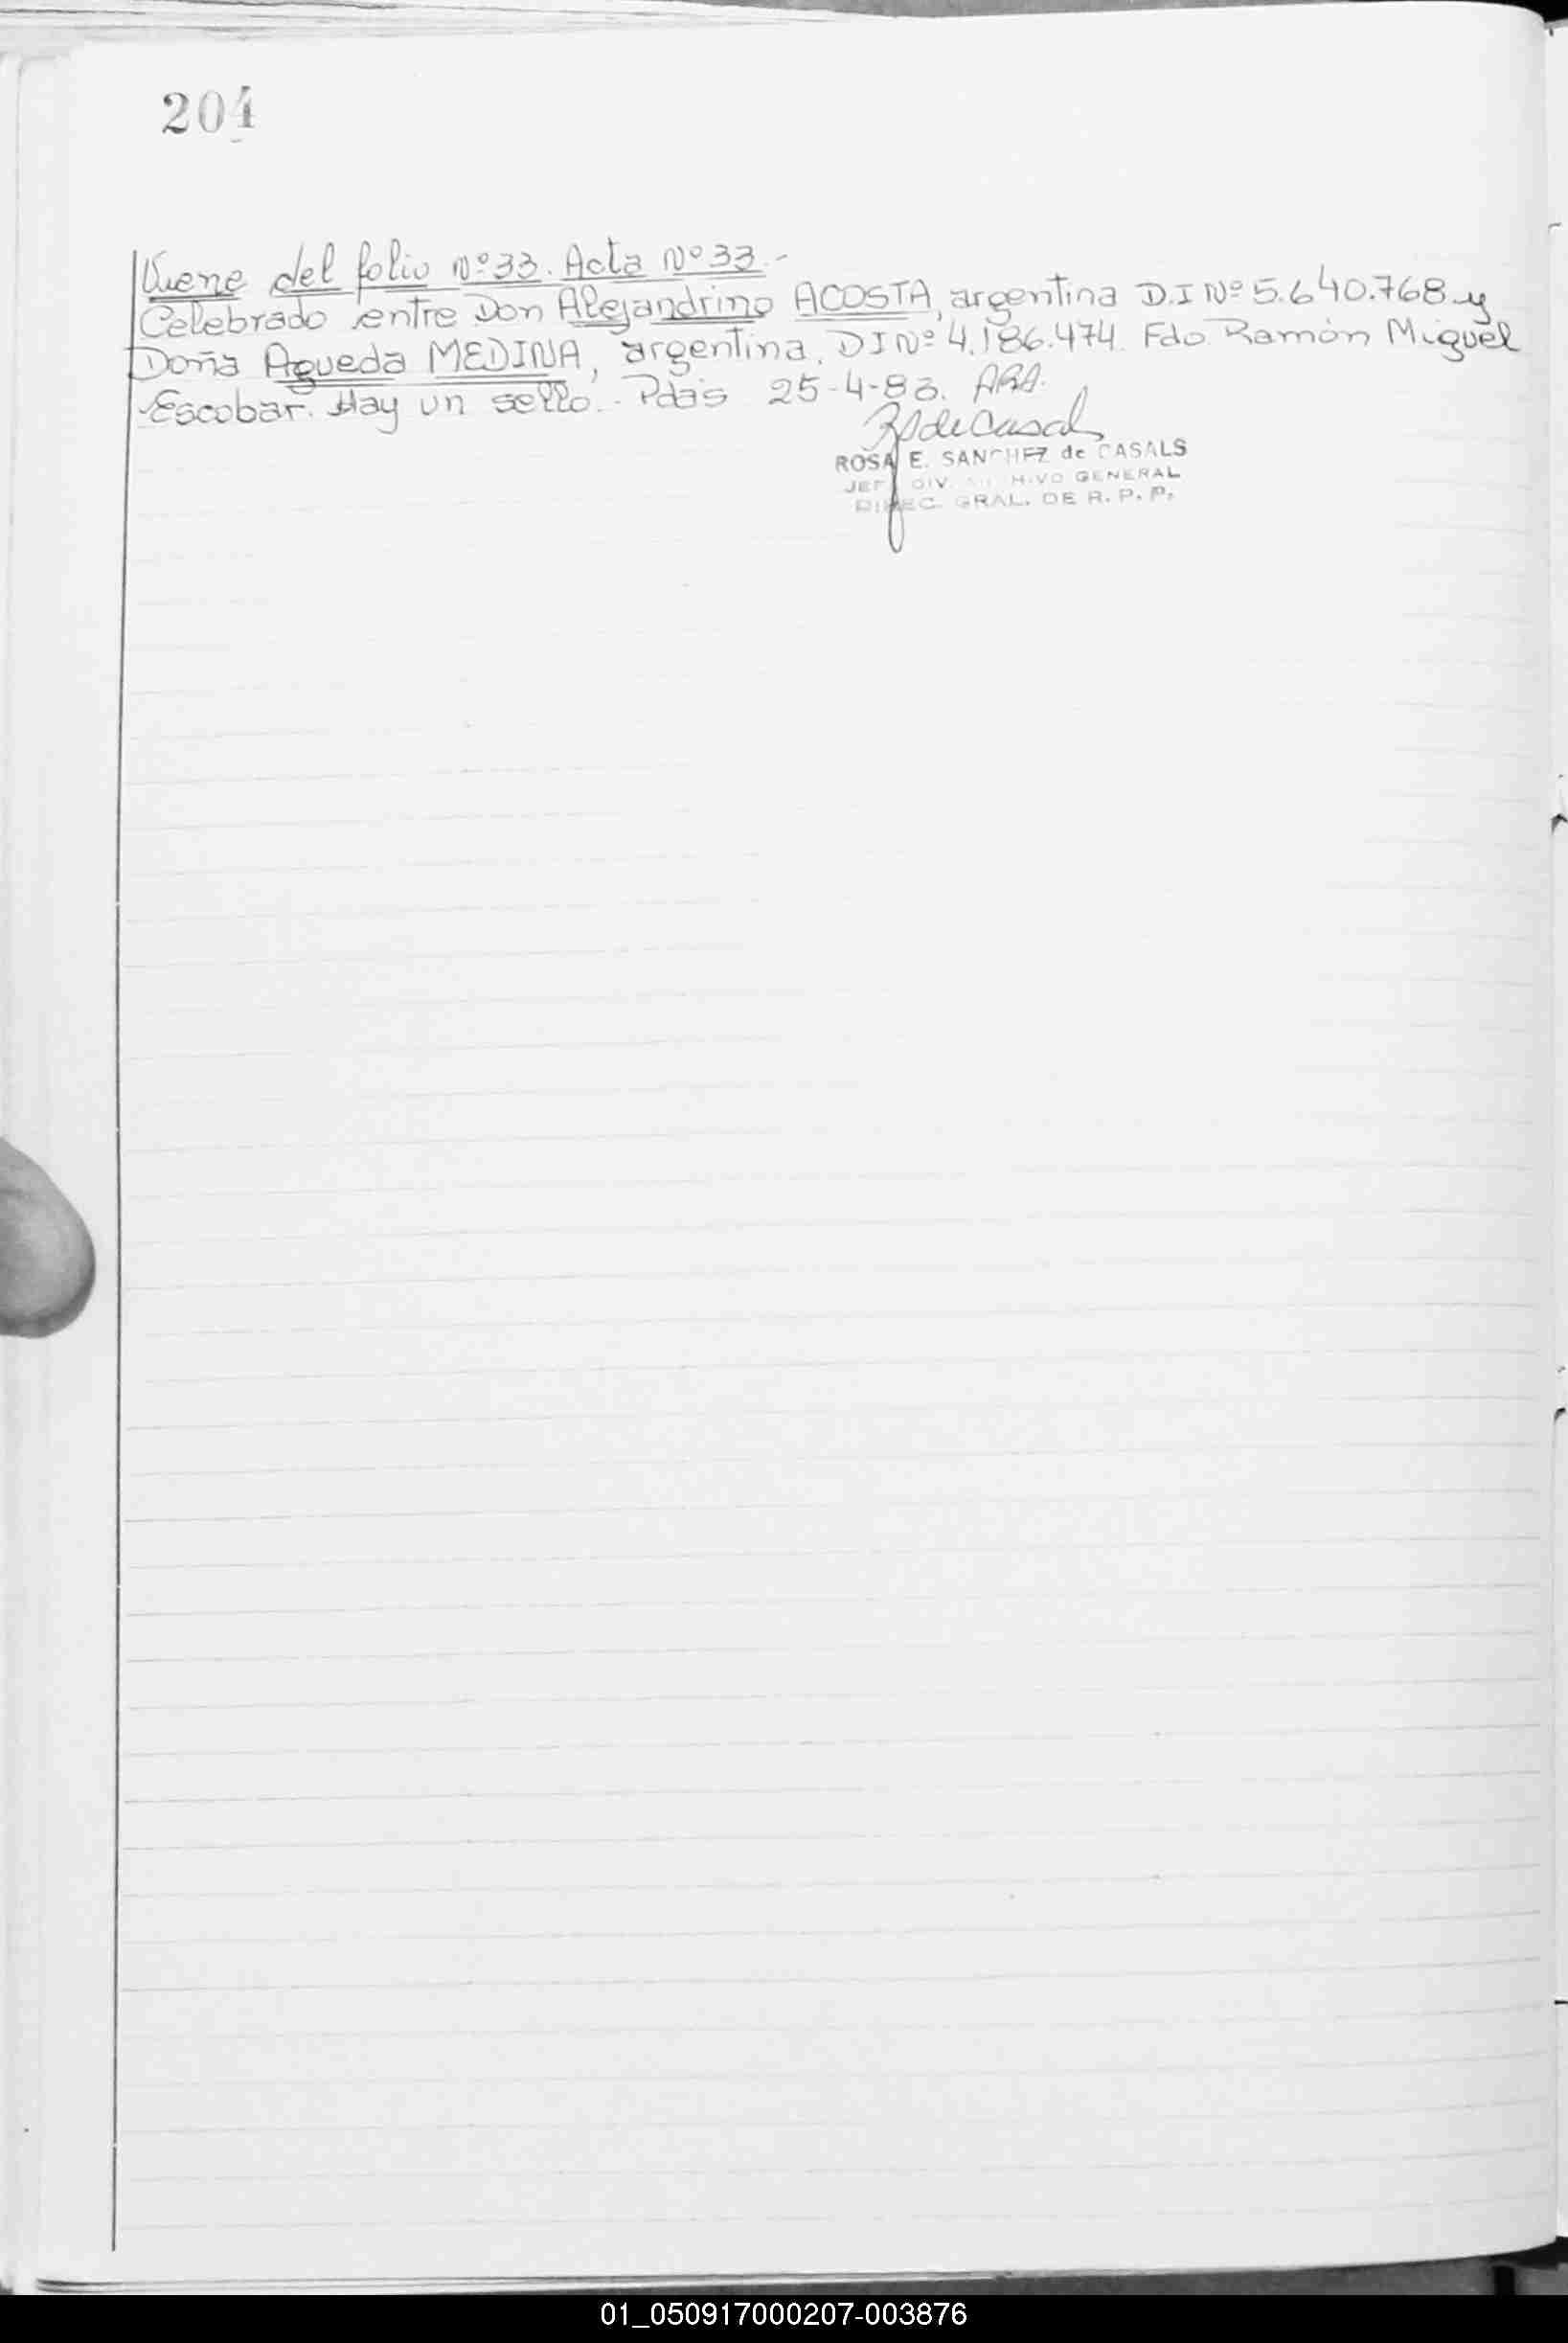 204
Viene del folio Nº 33. Acta Nº 33.-
Celebrado entre Don Alejandrino ACOSTA, argentina D.I Nº 5.640.768 y
Doña Agueda MEDINA, argentina. DI Nº 4.186.474. Fdo. Ramón Miguel
Escobar. Hay un sello.- Pdas 25-4-83. ARA.
ROSA E. SANCHEZ de CASALS
JEF DIV. GENERAL
DIREC. GRAL. DE R. P. P.
01_050917000207-003876